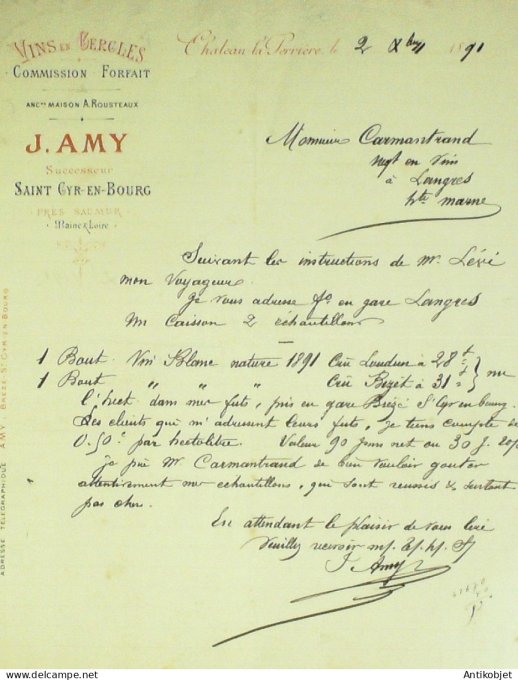 VINS EN CERCLES
COMMISSION FORFAIT
ANCNE MAISON A. ROUSTEAUX
J. AMY
Successeur
SAINT CYR-EN-BOURG
PRÈS SAUMUR
Maine & Loire
Château la Perrière, le 2 Xbre 1891
Monsieur Carmantrand
negt en Vin
à Langres
hte marne
Suivant les instructions de Mr. Lévi
mon Voyageur
Je vous adresse fo en gare Langres
Un Caisson 2 échantillons
1 Bout. Vin Blanc nature 1891 Crû Loudun à 28 f
1 Bout " " " Crû Bizet à 31 f
l'hect dans mes futs, pris en gare Brézé St Cyr en bourg.
Les clients qui m'adressent leurs futs, je tiens compte de
0.50 c par hectolitre. Valeur 90 jours net ou 30 j. 2 o/o
je prie Mr Carmantrand de bien vouloir gouter
attentivement mes échantillons, qui sont reussis & surtout
pas cher.
En attendant le plaisir de vous lire
Veuillez recevoir
J. Amy
ADRESSE TÉLÉGRAPHIQUE AMY, BRÉZÉ-ST CYR-EN-BOURG
Antikobjet